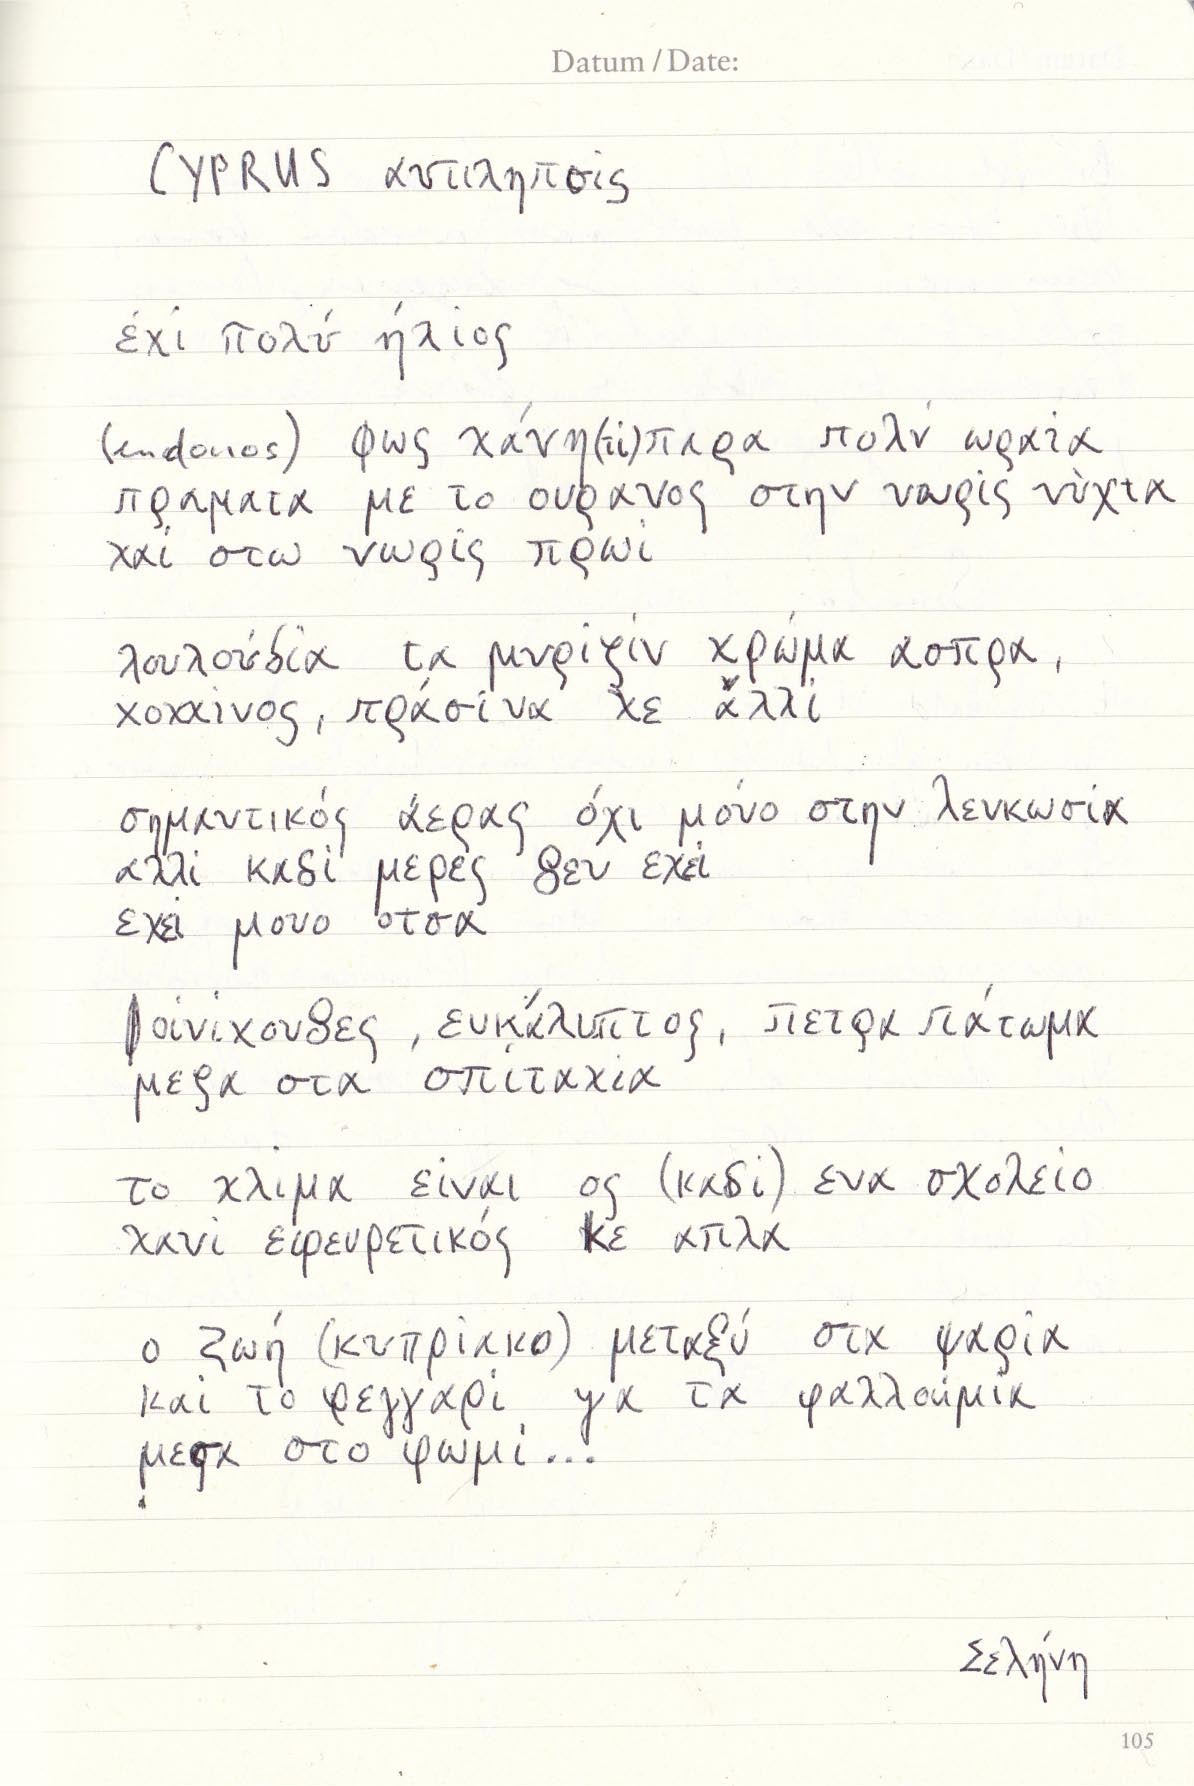 Datum / Date:
CYPRUS αντιληπσίς
έχί πολύ ήλίος
(endonos) φως χάνη (τί) παρα πολύ ωραία
πραματα με το ουρανος στην νωρίς νύχτα
χαί στω νωρίς πρωί
λουλούδια τα μυρίζίν χρώμα ασπρα,
χοχχίνος, πράσίνα χε άλλί
σημαντικός άερας όχι μόνο στην λευκωσία
αλλί καδί μερες δεν εχεί
εχεί μονο οτσα
φοίνίχουδες, ευκάλιπτος, πετρα πάτωμα
μεσα στα σπίταχία
το χλίμα είναι ος (καδί) ενα σχολείο
χανί εφευρετικός κε απλά
ο ζωή (κυπρίακο) μεταξύ στα ψαρία
καί το φεγγαρί γα τα φαλλούμία
μεσα στο ψωμί...
Σελήνη
105